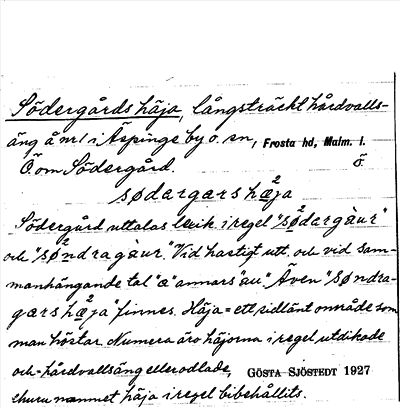 Södergårdshäja, långsträckt hårdvalls-
äng å nr 1 i Äspinge by o. sn, Frosta hd, Malm. l.
Ö om Södergård. ö
sødargarshæja
Södergård uttalas lexik. i regel "sødargàur"
och "søndragàur". Vid hastigt utt. och vid sam-
manhängande tal "a" annars "au". Även "søndra-
garshæja" finnes. Häja = ett sidlänt område som
man höstar. Numera äro häjorna i regel utdikade
och hårdvallsäng eller odlade, GÖSTA SJÖSTEDT 1927
ehuru namnet häja i regel bibehållits.